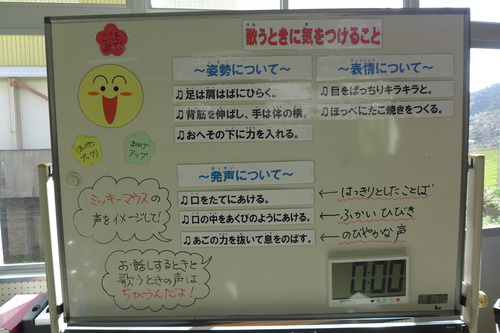 歌うときに気をつけること
～姿勢について～
♫足は肩はばにひらく。
♫背筋を伸ばし、手は体の横。
♫おへその下に力を入れる。
～表情について～
♫目をぱっちりキラキラと。
♫ほっぺにたこ焼きをつくる。
～発声について～
♫口をたてにあける。
←はっきりとしたことば
♫口の中をあくびのようにあける。
←ふかいひびき
♫あごの力を抜いて息をのばす。
←のびやかな声
アップ
ミッキーマウスの
声をイメージして!
お話しするときと
歌うときの声は
ちがうんだよ!
0:00